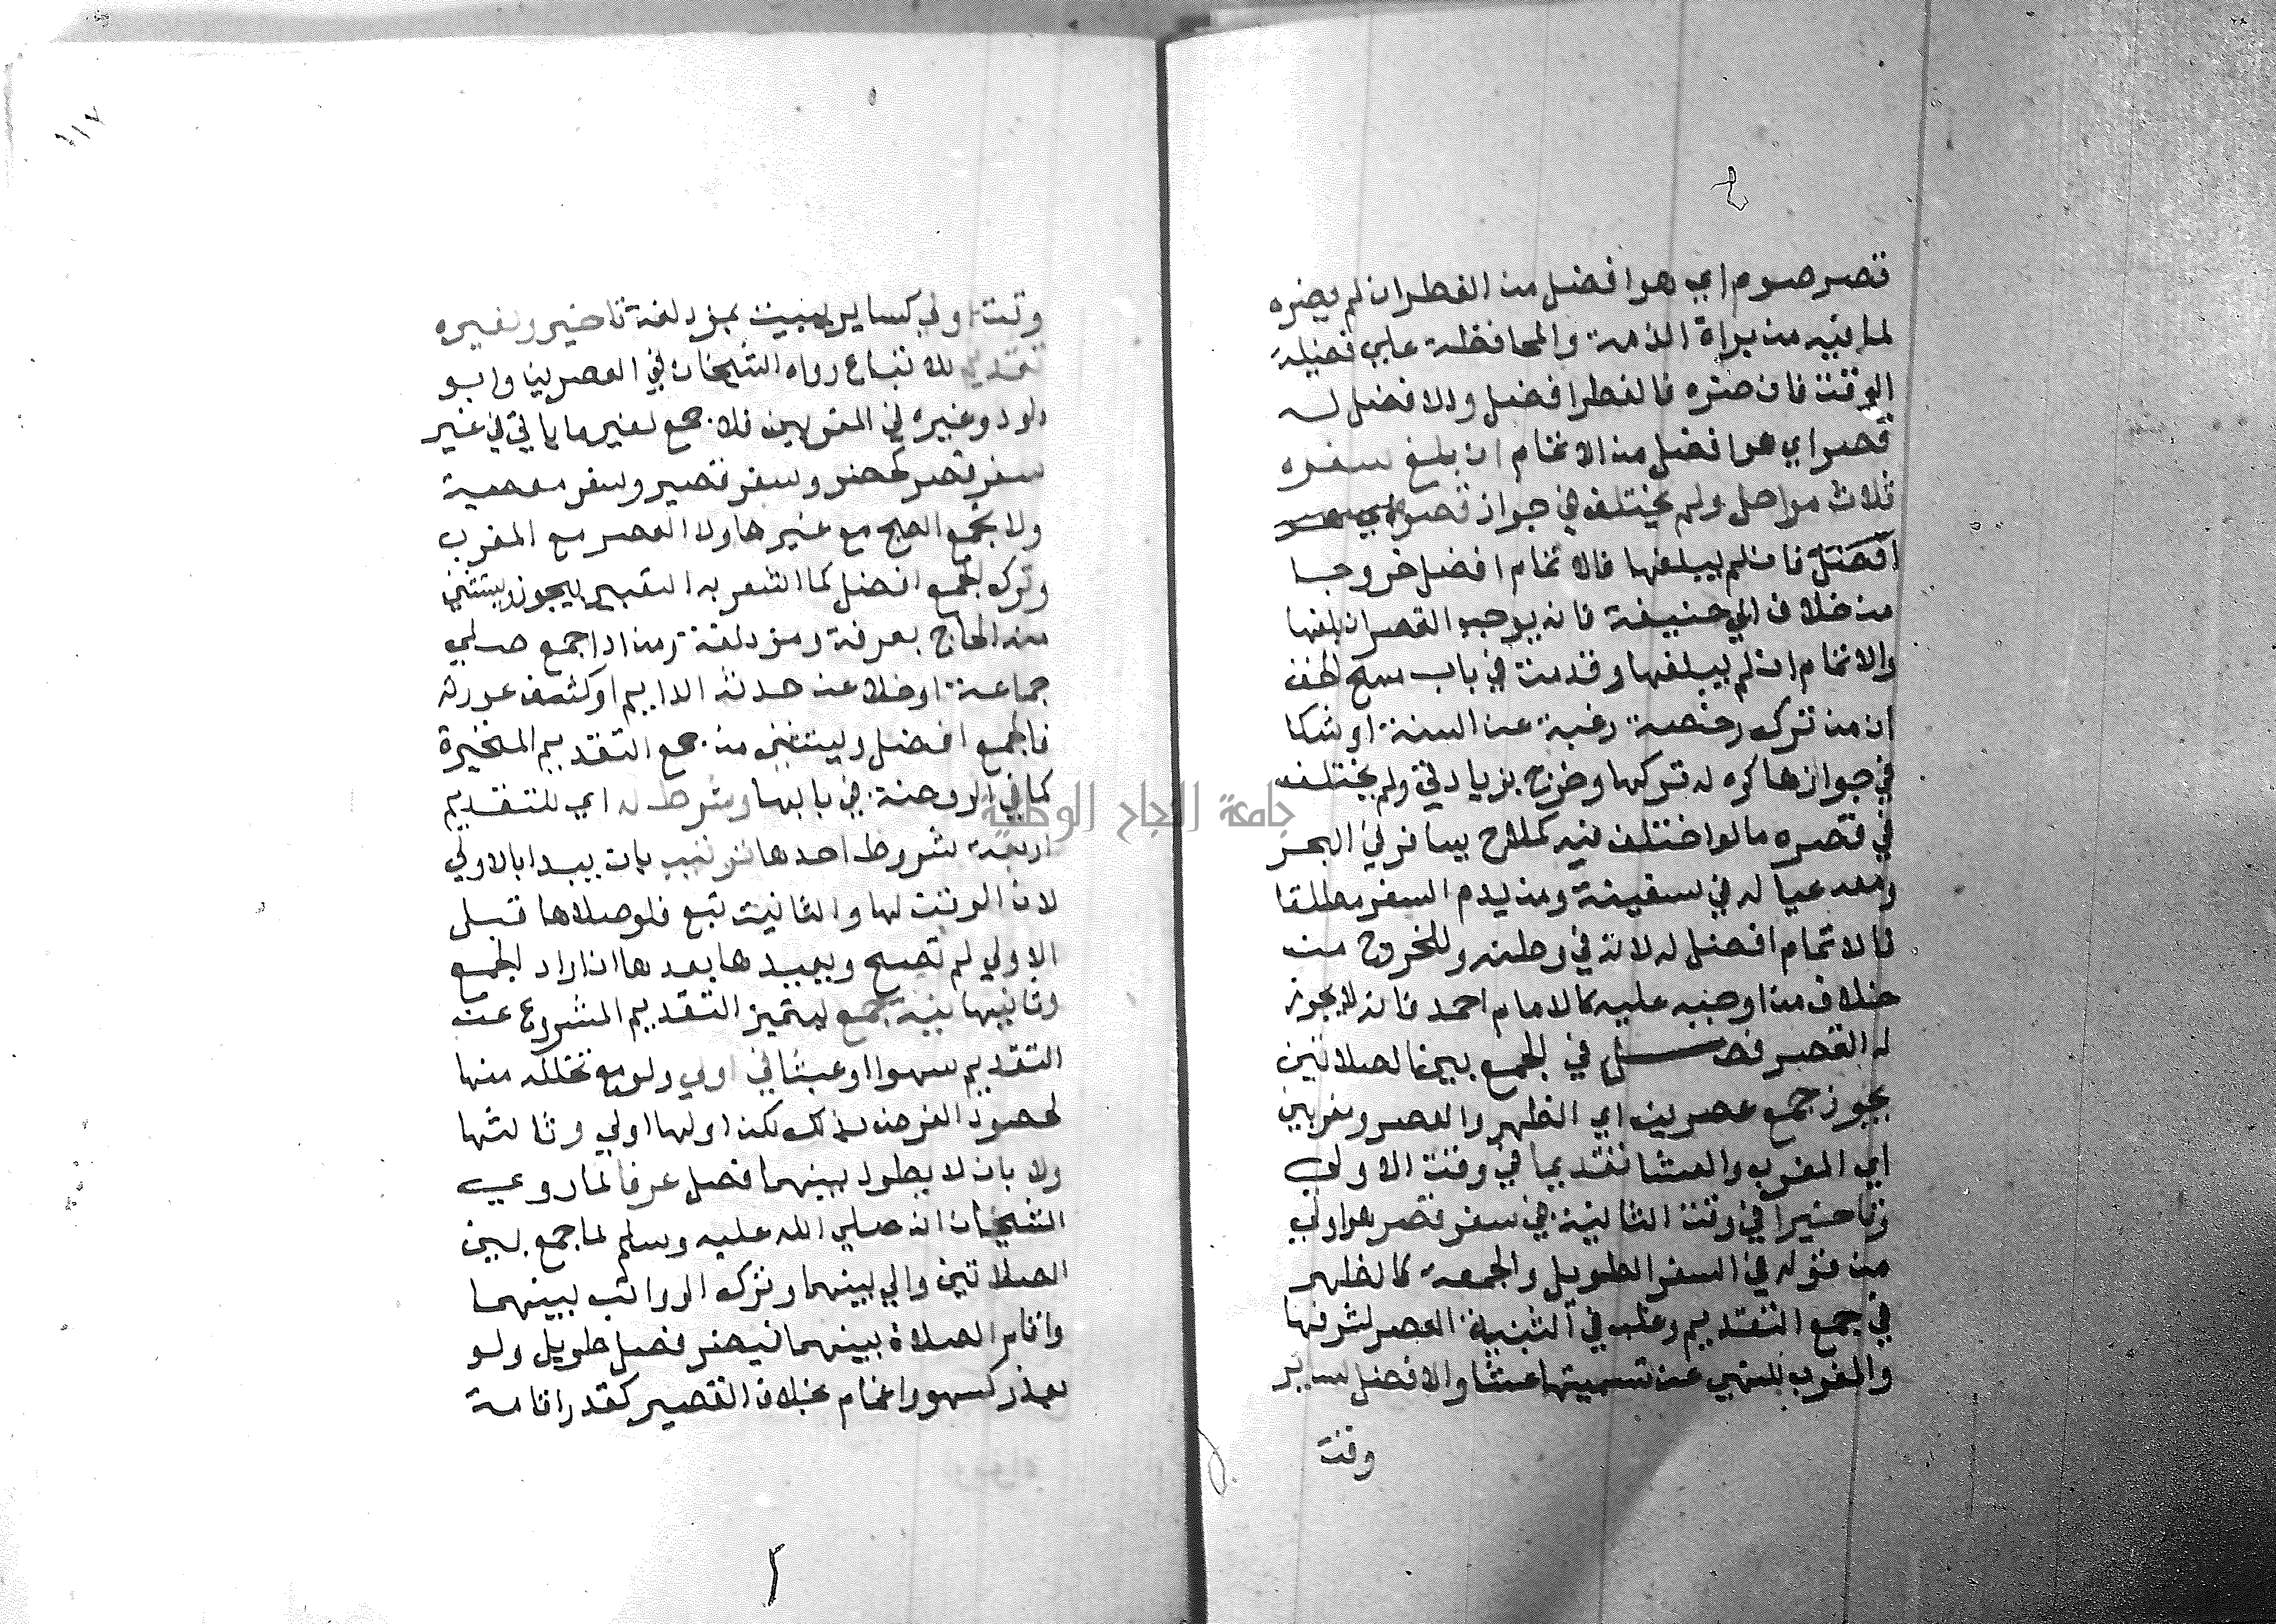 قصر صوم اي هو افضل من الفطر ان لم يضره
لما فيه من براة الذمة والمحافظة علي فضيلة
الوقت فان ضره فالفطر افضل والافضل له
قصر اي هو افضل من الاتمام ان بلغ سفره
ثلاث مراحل ولم يختلف في جواز قصره
افضل فان لم يبلغها فالاتمام افضل خروجا
من خلاف ابي حنيفة فانه يوجب القصر ان بلغها
والاتمام ان لم يبلغها وقدمت في باب مسح الخف
ان من ترك رخصة رغبة عن السنة او شكا
في جوازها كره له تركها وخرج بزيادتي ولم يختلف
في قصره ما لو اختلف فيه كملاح يسافر في البحر
ومعه عياله في سفينة ومن يديم السفر مطلقا
فالاتمام افضل له لانه في وطنه وللخروج من
خلاف من اوجبه عليه كالامام احمد فانه لا يجوز
له القصر فصل في الجمع بين الصلاتين
يجوز جمع عصرين اي الظهر والعصر ومغربين
اي المغرب والعشا تقديما في وقت الاولي
وتاخيرا في وقت الثانية في سفر قصر هو اولي
من قوله في السفر الطويل والجمعة كالظهر
في جمع التقديم وغلب في التثنية العصر لشرفها
والمغرب للنهي عن تسميتها عشا والافضل لساير
وقت
وقت اولي كساير يبيت بمزدلفة تاخير ولغيره
تقديم للاتباع رواه الشيخان في العصرين وابو
داود وغيره في المغربين فلا جمع لغير ما ياتي في غير
سفر قصر كحضر وسفر قصير وسفر معصية
ولا يجمع الصبح مع غيرها ولا العصر مع المغرب
وترك الجمع افضل كما اشعر به التعبير بيجوز ويستثني
منه الحاج بعرفة ومزدلفة ومن اذا جمع صلي
جماعة او خلا عن حدثه الدايم او كشف عورته
فالجمع افضل ويستثني من جمع التقديم المتحيرة
كما في الروضة في بابها وشرط له اي للتقديم
اربعة شروط احدها ترتيب بان يبدا بالاولي
لان الوقت لها والثانية تبع فلو صلاها قبل
الاولي لم تصح ويعيدها بعدها ان اراد الجمع
وثانيها نية جمع ليتميز التقديم المشروع عن
التقديم سهوا او عبثا في اولي ولو مع تحلله منها
لحصول الغرض بذلك لكن اولها اولي وثالثها
ولا بان لا يطول بينهما فصل عرفا لما روي
الشيخان انه صلي الله عليه وسلم لما جمع بين
الصلاتين والي بينهما وترك الرواتب بينهما
واقام الصلاة بينهما فيضر فصل طويل ولو
بعذر كسهو واغمام بخلاف القصير كقدر اقامة
جامعة النجاح الوطنية